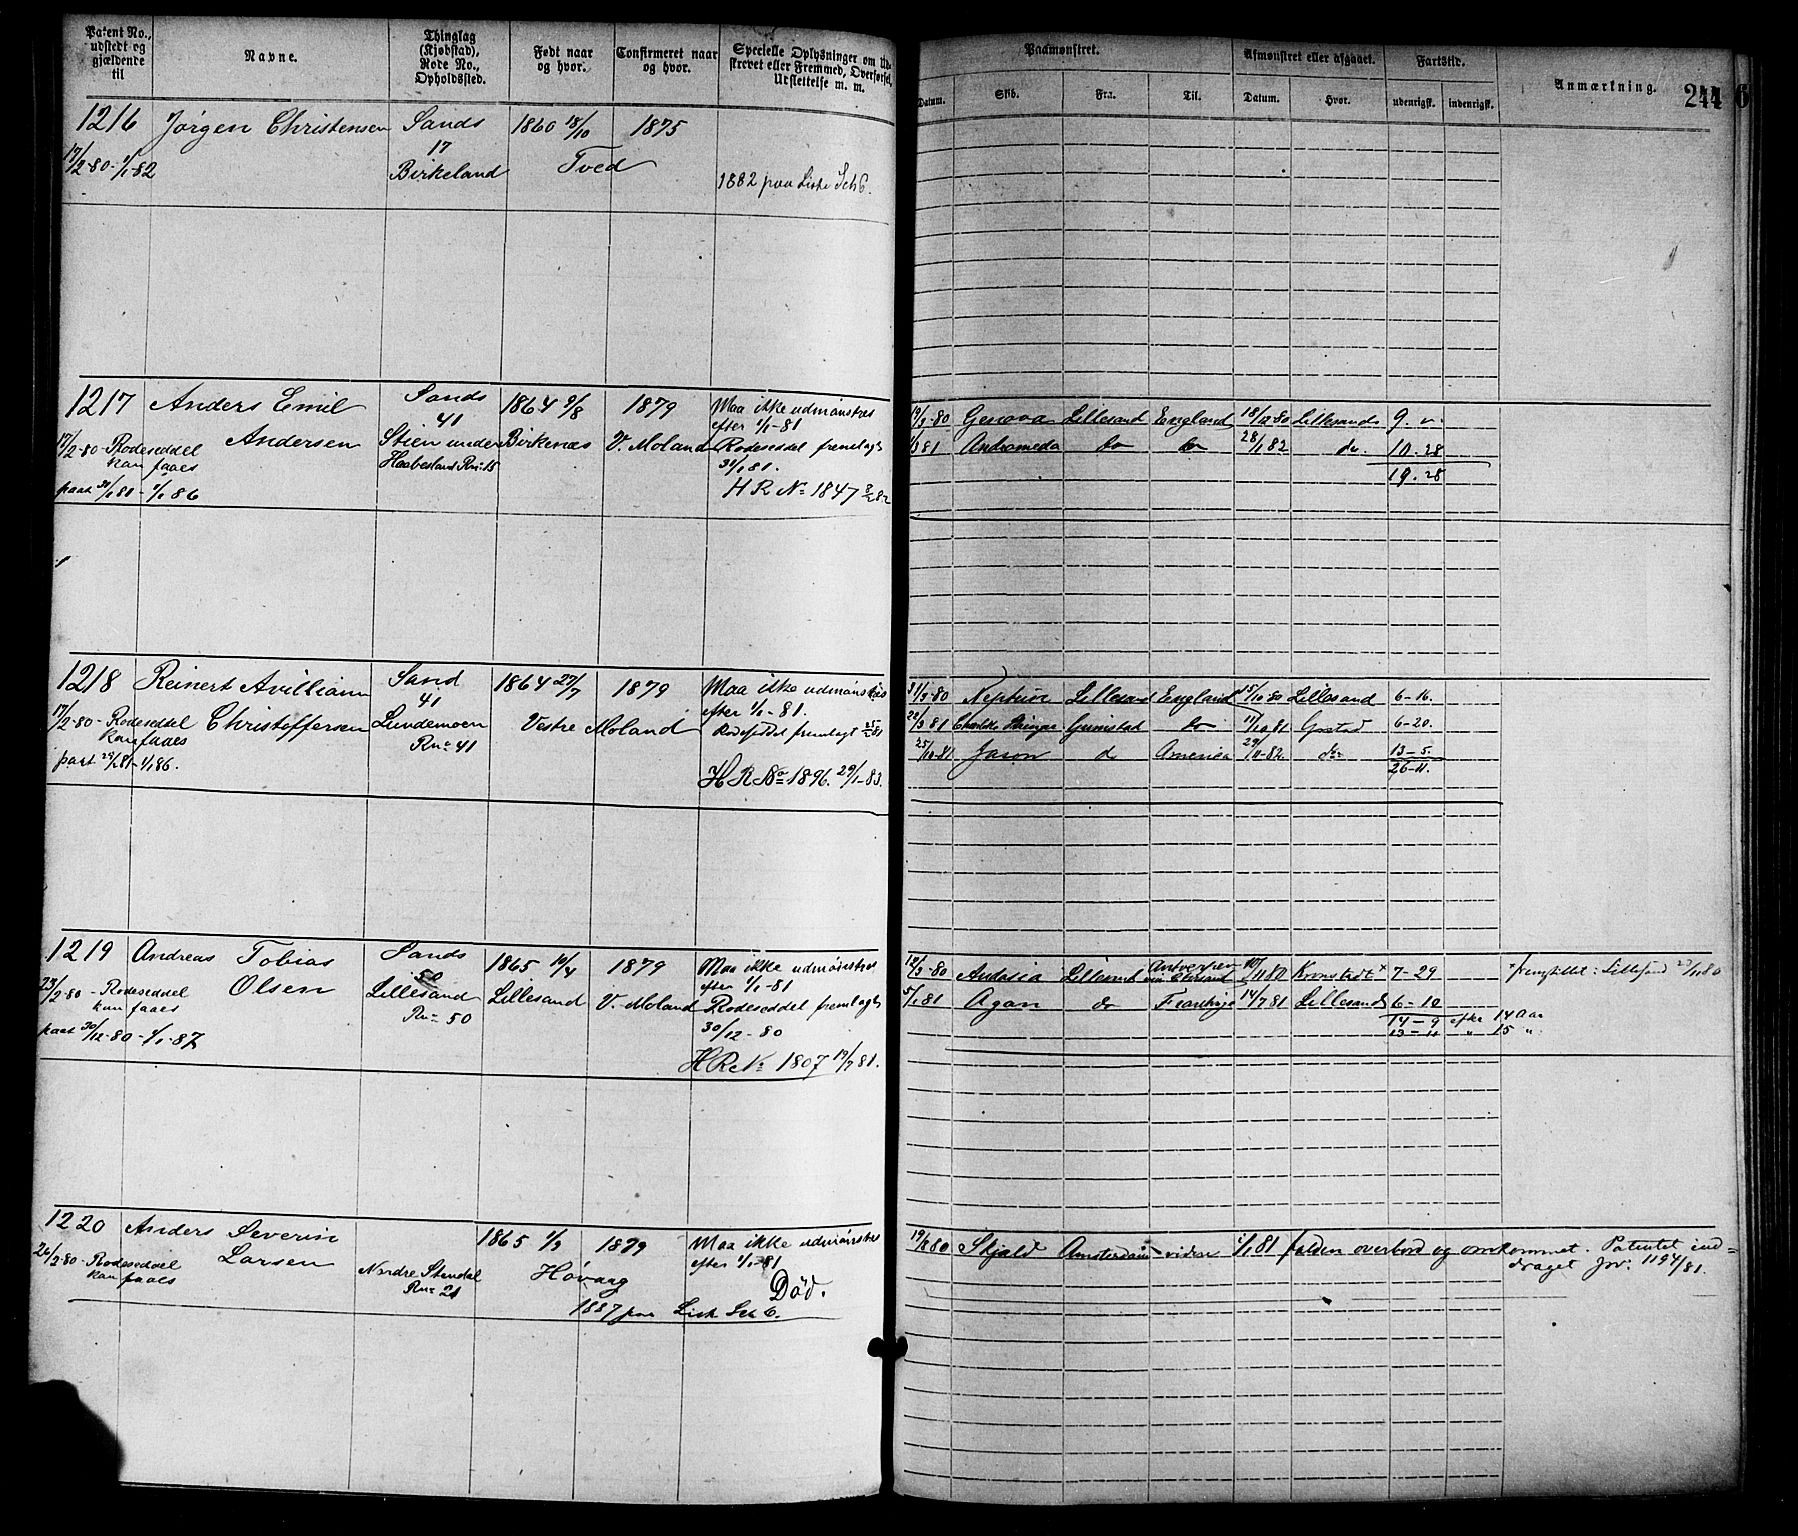 Patent No., udstedt og gjældende til
Navne.
Thinglag (Kjøbstad), Rode No., Opholdssted.
Født naar og hvor.
Confirmeret naar og hvor.
Specielle Oplysninger om Ud-
skrevet eller Fremmed, Overførsel,
Udslettelse m. m.
Paamønstret.
Datum. Skib. Fra. Til.
Afmønstret eller afgaaet.
Datum. Hvor.
Fartstid.
udenrigsk. indenrigsk.
Anmærkning.
244
6
1216 Jørgen Christensen Sands 1860 18/10 1875
17
17/2-80-1/1-82 Birkeland Tved
1882 paa Liste Sch6.
1217 Anders Emil Sands 1864 9/8 1879 Maa ikke udmønstres
Andersen 41 efter 1/1-81
17/2-80-Rodeseddel Stien under Birkenæs V. Moland Rodeseddel fremlagt
kan faaes Haabesland Rno 15 31/1 81.
paat 31/1 81-1/1 86 H R No 1847 3/2 82
19/3-80 Genova Lillesand England 18/12 80 Lillesands 9. "
1/3 81 Andromeda do do 28/1 82 do. 10.28
19.28
1218 Reinert Avilliam Sand 1864 27/7 1879 Maa ikke udmønstres
41 efter 1/1-81.
17/2-80-Rodeseddel Christoffersen Lundemoen Vestre Moland Rodeseddel fremlagt 25/2 81
kan faaes Rno 41
paat 25/2 81-1/1 86. H R No 1896. 29/1-83.
31/3-80 Neptun Lillesand England 15/10 80 Lillesand 6-16.
22/3 81 Grimstad do 11/10 81 Grstad 6-20.
25/10-81 Jason do America 29/11-82. do 13-5.
26-11.
1219 Andreas Tobias Sands 1865 10/4 1879 Maa ikke udmønstres
Olsen 50 efter 1/1-81
23/2-80-Rodeseddel Lillesand Lillesand V. Moland Rodeseddel fremlagt
kan faaes Rno 50 30/12-80
paat 30/12-80-1/1-87 H R No 1807 19/7 81.
12/3-80 Lillesand Antwerpen 10/11 80 Kronstadt x 7-29
5/1 81 Agan do 14/7 81 Lillesands 6-10
14-9 efter 14 Aar
13-11 " 15 "
1220 Anders Severin 1865 1/3 1879 Maa ikke udmønstres
Larsen efter 1/1-81
26/2-80-Rodeseddel Nordre Stendal Høvaag Død.
kan faaes Rno 21
1887 paa List Sch 6.
19/8 80 Skjold Amsterdam viden 1/1 81 falden overbord og omkommet. Patentet ind-
draget Jnr: 1194/81.